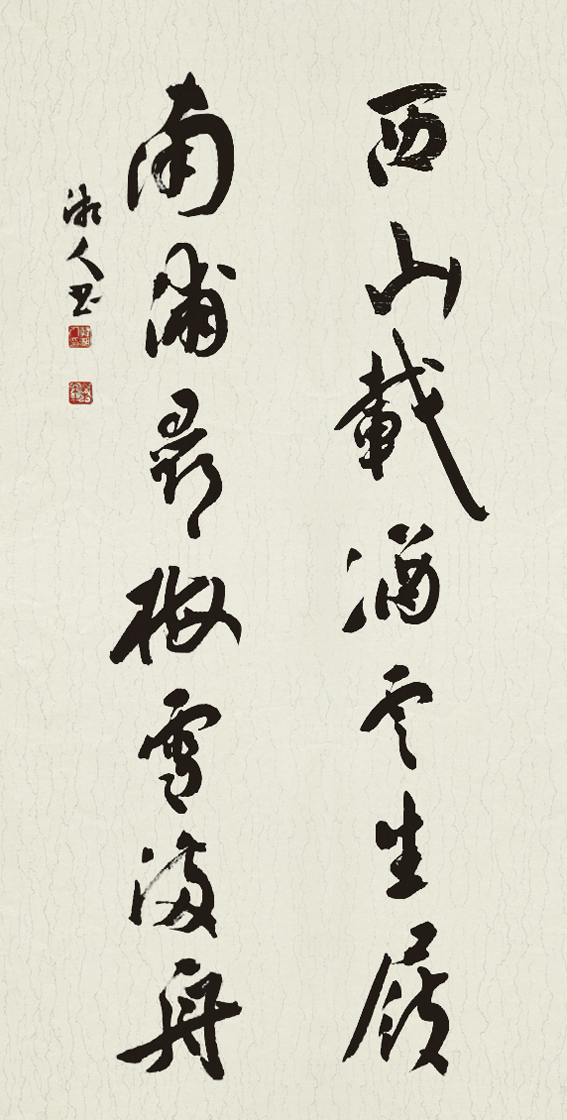 西山載酒雲生屐
南浦尋梅雪滿舟
湘人书